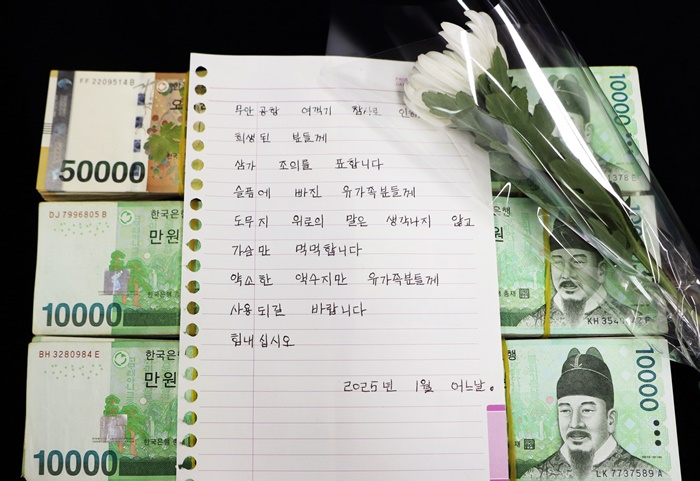 FF 2209514 B
50000
DJ 7996805 B
한국은행
만원
10000
BH 3280984 E
한국은행
만원
10000
무안 공항 여객기 참사로 인해
희생된 분들께
삼가 조의를 표합니다
슬픔에 빠진 유가족분들께
도무지 위로의 말은 생각나지 않고
가슴만 먹먹합니다
약소한 액수지만 유가족분들께
사용되길 바랍니다
힘내십시오
2025년 1월 어느날.
10000
1378 E
은행
총재
KH 354
은행
10000
LK 7737589 A